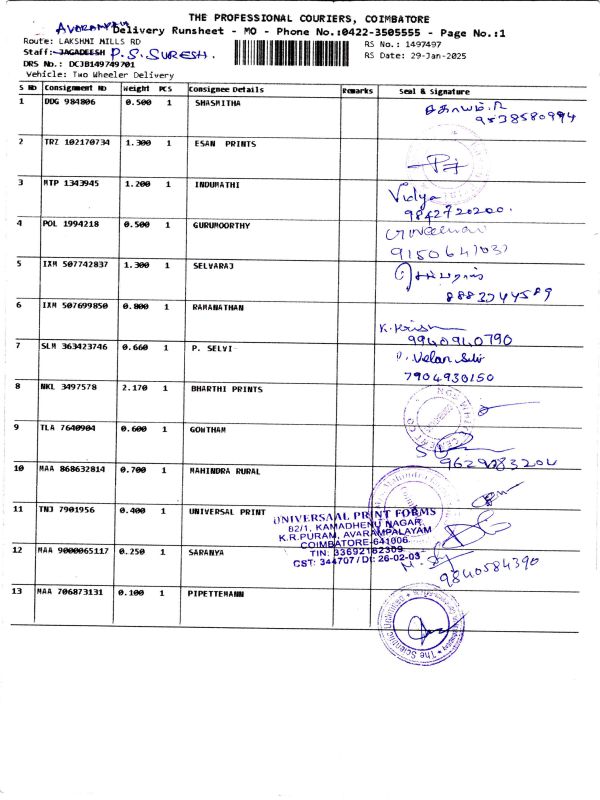 THE PROFESSIONAL COURIERS, COIMBATORE
Delivery Runsheet - MO - Phone No.:0422-3505555 - Page No.:1
Route: LAKSHMI MILLS RD
RS No.: 1497497
Staff: JAGADEESH P.S. SURESH.
RS Date: 29-Jan-2025
DRS No.: DCJB149749701
Vehicle: Two Wheeler Delivery
S No Consignment No Weight PCS Consignee Details Remarks Seal & Signature
1 DDG 984806 0.500 1 SHASMITHA
9538580994
2 TRZ 102170734 1.300 1 ESAN PRINTS
3 MTP 1343945 1.200 1 INDUMATHI Vidya
9842720200.
4 POL 1994218 0.500 1 GURUMOORTHY
5 IXM 507742837 1.300 1 SELVARAJ
6 IXM 507699850 0.800 1 RAMANATHAN K. Krish
9940940790
7 SLM 363423746 0.660 1 P. SELVI
7904930150
8 NKL 3497578 2.170 1 BHARTHI PRINTS
9 TLA 7640904 0.600 1 GOWTHAM
10 MAA 868632814 0.700 1 MAHINDRA RURAL
11 TNJ 7901956 0.400 1 UNIVERSAL PRINT
UNIVERSAAL PRINT FORMS
82/1, KAMADHENU NAGAR,
K.R.PURAM, AVARAMPALAYAM
COIMBATORE-641006.
TIN: 33692162309
CST: 344707 / Dt: 26-02-03
12 MAA 9000065117 0.250 1 SARANYA
9840584390
13 MAA 706873131 0.100 1 PIPETTEMANN